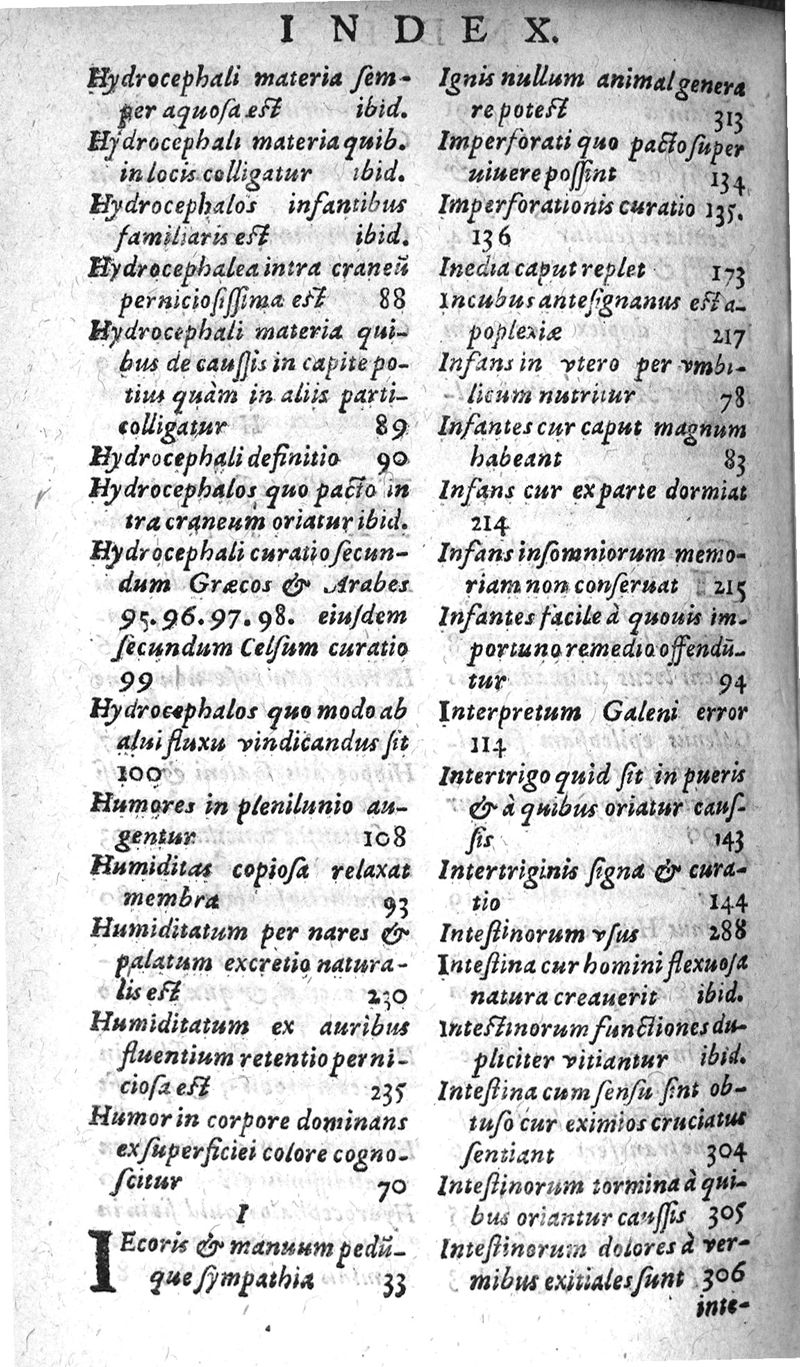 INDEX.
Hydrocephali materia ſem-
per aquoſa eſt ibid.
Hydrocephali materia quib.
in locis colligatur ibid.
Hydrocephalos infantibus
familiaris eſt ibid.
Hydrocephalea intra craneū
pernicioſiſſima eſt 88
Hydrocephali materia qui-
bus de cauſſis in capite po-
tius quàm in aliis parti-
colligatur 89
Hydrocephali definitio 90
Hydrocephalos quo pacto in
tra craneum oriatur ibid.
Hydrocephali curatio ſecun-
dum Græcos & Arabes
95.96.97.98. eiuſdem
ſecundum Celſum curatio
99
Hydrocephalos quo modo ab
alui fluxu vindicandus ſit
100
Humores in plenilunio au-
gentur 108
Humiditas copioſa relaxat
membra 93
Humiditatum per nares &
palatum excretio natura-
lis eſt 230
Humiditatum ex auribus
fluentium retentio perni-
cioſa eſt 235
Humor in corpore dominans
ex ſuperficiei colore cogno-
ſcitur 70
I
IEcoris & manuum pedū-
que ſympathia 33
Ignis nullum animal genera
re poteſt 313
Imperforati quo pacto ſuper
uiuere poſſint 134
Imperforationis curatio 135.
136
Inedia caput replet 173
Incubus anteſignanus eſt a-
poplexiæ 217
Infans in vtero per vmbi-
licum nutritur 78
Infantes cur caput magnum
habeant 83
Infans cur ex parte dormiat
214
Infans inſomniorum memo-
riam non conſeruat 215
Infantes facile à quouis im-
portuno remedio offendū-
tur 94
Interpretum Galeni error
114
Intertrigo quid ſit in pueris
& à quibus oriatur cauſ-
ſis 143
Intertriginis ſigna & cura-
tio 144
Inteſtinorum vſus 288
Inteſtina cur homini flexuoſa
natura creauerit ibid.
Inteſtinorum functiones du-
pliciter vitiantur ibid.
Inteſtina cum ſenſu ſint ob-
tuſo cur eximios cruciatus
ſentiant 304
Inteſtinorum tormina à qui-
bus oriantur cauſſis 305
Inteſtinorum dolores à ver-
mibus exitiales ſunt 306
inte-